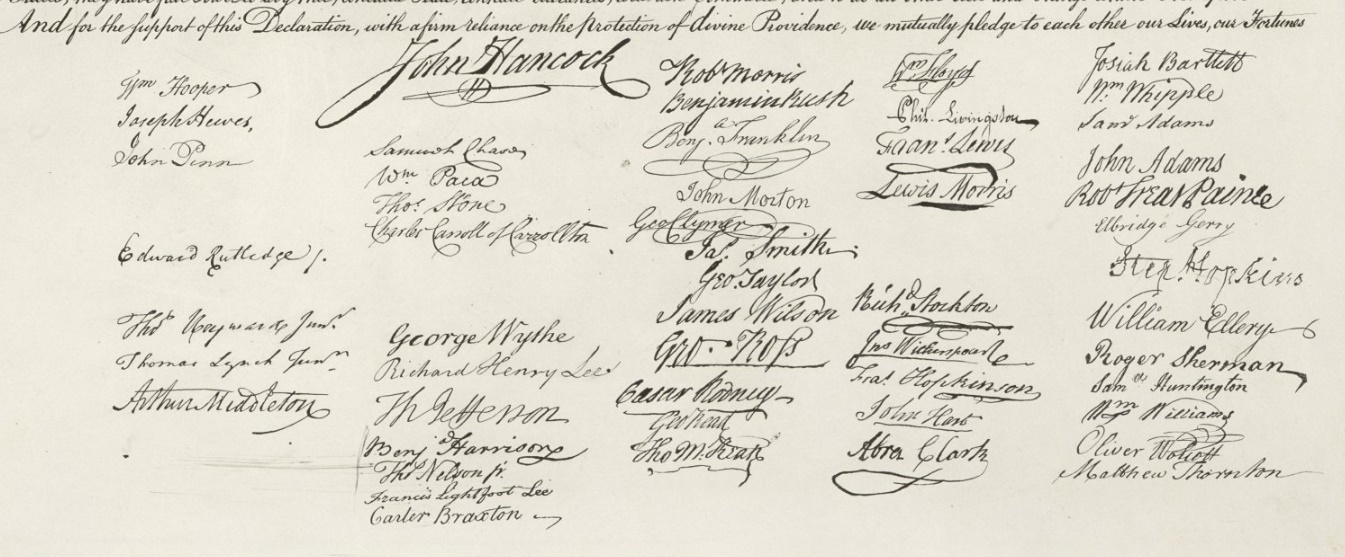 And for the support of this Declaration, with a firm reliance on the protection of divine Providence, we mutually pledge to each other our Lives, our Fortunes
Wm Hooper
Joseph Hewes,
John Penn
Edward Rutledge /.
Thos Heyward Junr.
Thomas Lynch Junr.
Arthur Middleton
John Hancock
Samuel Chase
Wm. Paca
Thos. Stone
Charles Carroll of Carrollton
George Wythe
Richard Henry Lee
Th Jefferson
Benja Harrison
Thos Nelson jr.
Francis Lightfoot Lee
Carter Braxton
Robt Morris
Benjamin Rush
Benja. Franklin
John Morton
Geo Clymer
Jas. Smith
Geo. Taylor
James Wilson
Geo. Ross
Caesar Rodney
Geo Read
Tho M:Kean
Wm Floyd
Phil. Livingston
Frans. Lewis
Lewis Morris
Richd. Stockton
Jno Witherspoon
Fras. Hopkinson
John Hart
Abra Clark
Josiah Bartlett
Wm Whipple
Saml Adams
John Adams
Robt Treat Paine
Elbridge Gerry
Step. Hopkins
William Ellery
Roger Sherman
Saml Huntington
Wm Williams
Oliver Wolcott
Matthew Thornton